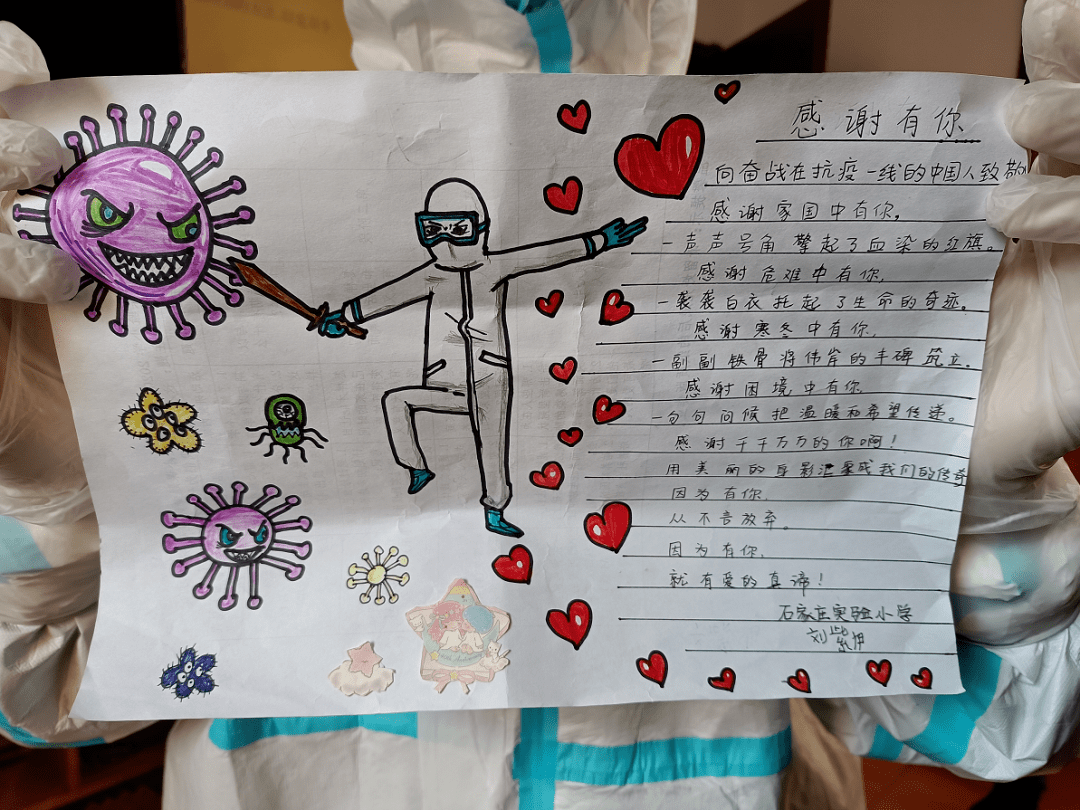 感谢有你
向奋战在抗疫一线的中国人致敬
感谢家国中有你，
一声声号角擎起了血染的红旗。
感谢危难中有你，
一袭袭白衣托起了生命的奇迹。
感谢寒冬中有你，
一副副铁骨将伟岸的丰碑筑立。
感谢困境中有你
一句句问候把温暖和希望传递。
感谢千千万万的你啊！
用美丽的身影汇聚成我们的传奇
因为有你，
从不言放弃。
因为有你，
就有爱的真谛！
石家庄实验小学
刘紫